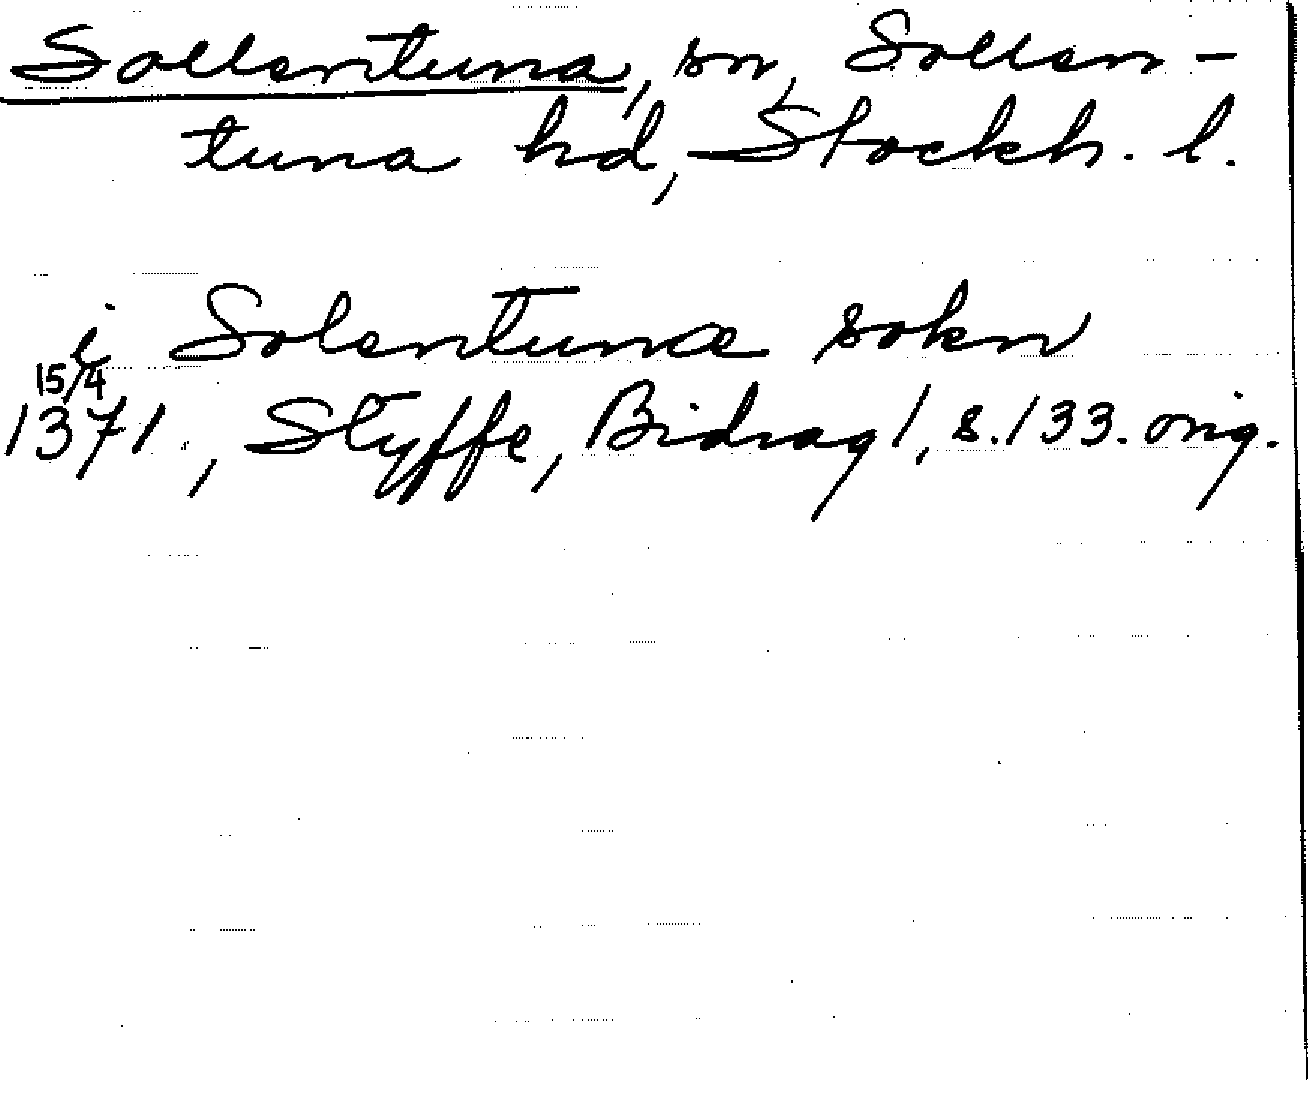 Sollentuna, sn, Sollen-
tuna hd, Stockh. l.
i Solentunæ sokn
15/4
1371., Styffe, Bidrag 1, s. 133. orig.